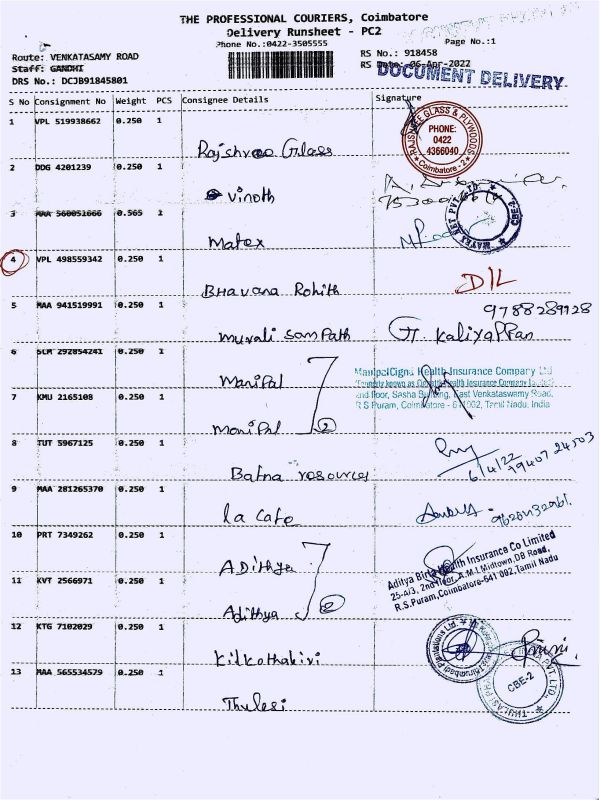 THE PROFESSIONAL COURIERS, Coimbatore
Delivery Runsheet - PC2
Phone No.:0422-3505555
Page No.:1
Route: VENKATASAMY ROAD
RS No.: 918458
Staff: GANDHI
RS Date: 06-Apr-2022
DOCUMENT DELIVERY
DRS No.: DCJB91845801
S No Consignment No Weight PCS Consignee Details Signature
1 VPL 519938662 0.250 1
Rajshree Glass
RAJSHREE GLASS & PLYWOODS
PHONE:
0422
4366040
Coimbatore - 2
2 DDG 4201239 0.250 1
Vinoth
3 MAA 560051666 0.565 1
Matex
CBE-2
4 VPL 498559342 0.250 1
Bhavana Rohith
D/L
5 MAA 941519991 0.250 1
9788289128
Murali Sampath G. Kaliyappan
6 SLM 292854241 0.250 1
Manipal
ManipalCigna Health Insurance Company Ltd
2nd floor, Sasha Building, East Venkataswamy Road,
R.S Puram, Coimbatore - 641002, Tamil Nadu, India
7 KMU 2165108 0.250 1
Manipal
2
8 TUT 5967125 0.250 1
Bafna resources
6/4/22
9 MAA 281265370 0.250 1
La Cafe
10 PRT 7349262 0.250 1
Adithya
Aditya Birla Health Insurance Co Limited
25-A/3, 2nd floor, A.M.I Midtown, DB Road,
R.S.Puram, Coimbatore-641 002, Tamil Nadu
11 KVT 2566971 0.250 1
Adithya
2
12 KTG 7102029 0.250 1
Kilkothakiri
13 MAA 565534579 0.250 1
Thulasi
CBE-2